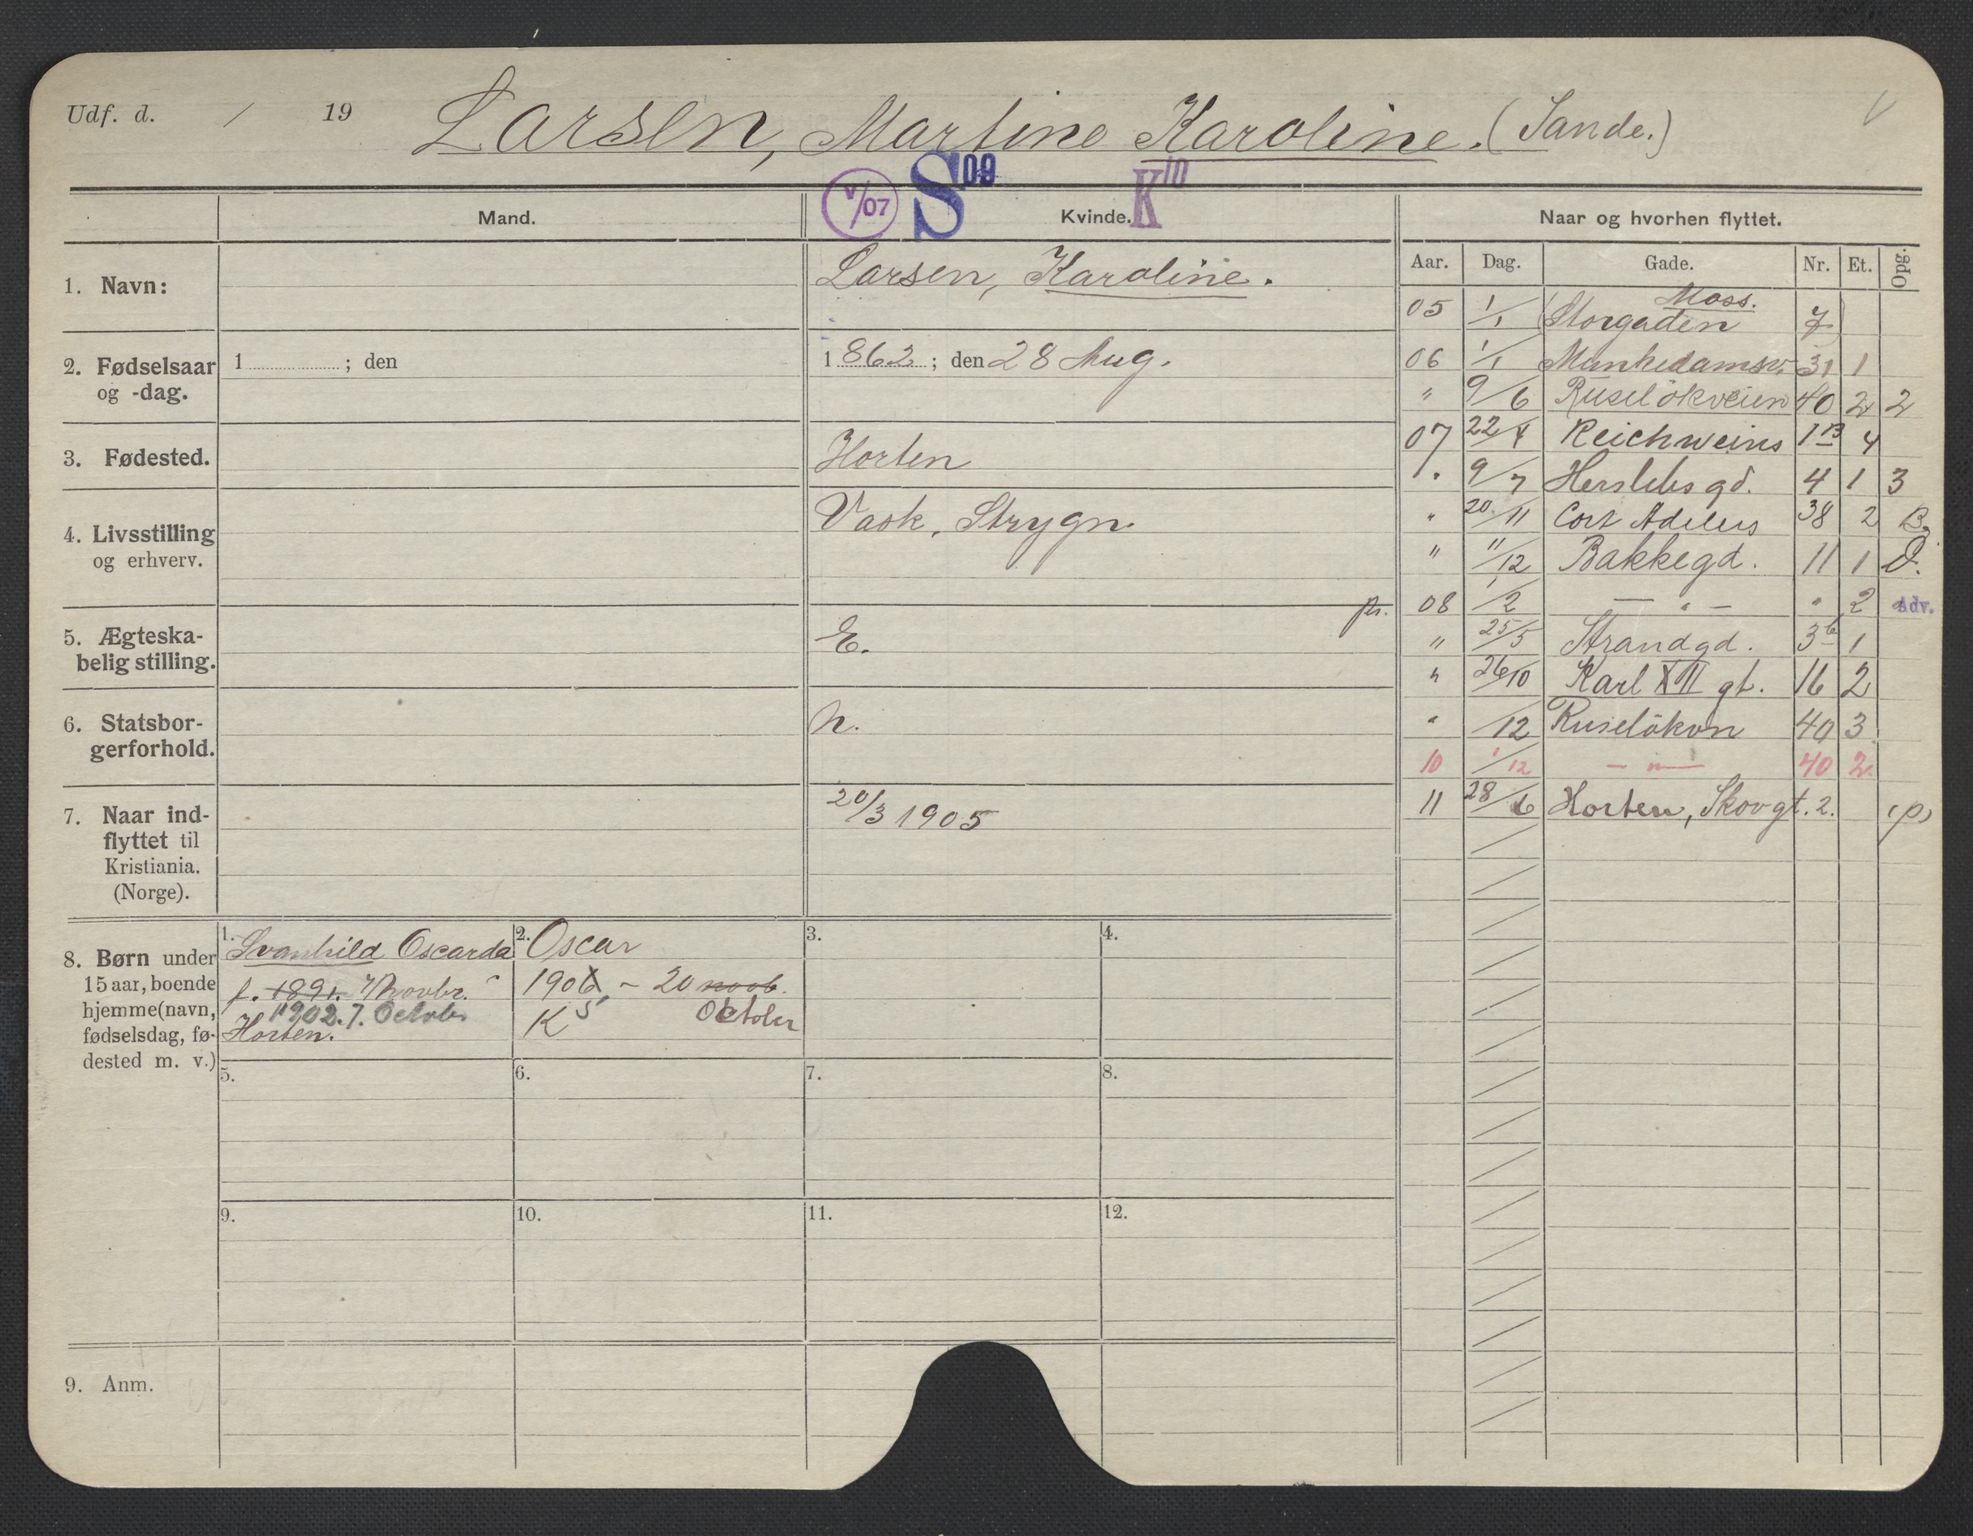 Udf. d. / 19 Larsen, Martine Karoline. (Sande.)
V/07 S 09 K 10
Mand. Kvinde. Naar og hvorhen flyttet.
Aar. Dag. Gade. Nr. Et. Opg.
1. Navn:
Larsen, Karoline.
2. Fødselsaar
og -dag.
1 ; den
1862 ; den 28 Aug.
3. Fødested.
Horten
4. Livsstilling
og erhverv.
Vask, Strygn.
5. Ægteska-
belig stilling.
E.
6. Statsbor-
gerforhold.
n.
7. Naar ind-
flyttet til
Kristiania.
(Norge).
20/3 1905
Moss.
05 1/1 (Storgaden 7)
06 1/1 Munkedamsv. 31 1
" 9/6 Ruselökveien 40 2 2
07 22/4 Reichweins 1 B 4
" 9/7 Herslebsgd. 4 1 3
" 20/11 Cort Adelers 38 2 B
" 11/12 Bakkegd. 11 1 O.
pr. 08 1/2 — " — " 2 Adv.
" 25/5 Strandgd. 3b 1
" 26/10 Karl XII gt. 16 2
" /12 Ruselökvn 40 3
10 1/12 — " — 40 2.
11 28/6 Horten, Skovgt. 2. (p)
8. Børn under
15 aar, boende
hjemme (navn,
fødselsdag, fø-
dested m. v.)
1. Svanhild Oscarda
f. 1891. 7/Novbr.
1902. 7. October
Horten.
2. Oscar
1906 - 20 novb.
5 October
K
3.
4.
5.
6.
7.
8.
9.
10.
11.
12.
9. Anm.